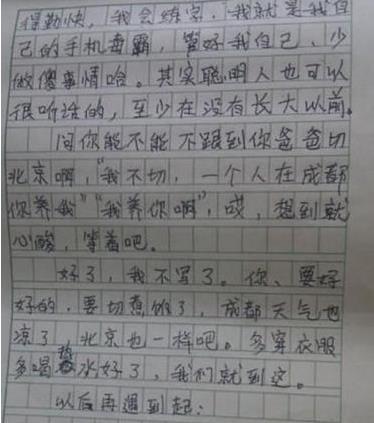 得勤快，我会练字，"我就是我自
己的手机毒霸，管好我自己、少
做傻事情哈。其实聪明人也可以
很听话的，至少在没有长大以前。
问你能不能不跟到你爸爸切
北京啊，"我不切，一个人在成都
你养我""我养你啊"，哎，想到就
心酸，等着吧。
好了，我不写了。你、要好
好的，要切煮饭了，成都天气也
凉了，北京也一样吧。多穿衣服
多喝热水好了，我们就到这。
以后再遇到起：